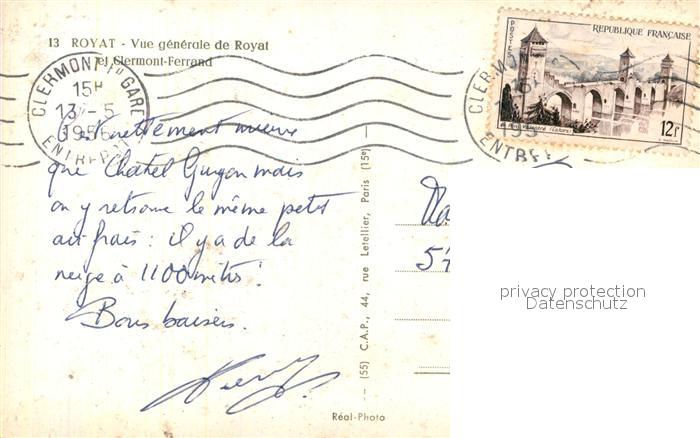 13 ROYAT - Vue générale de Royat
et Clermont-Ferrand
CLERMONT Fd GARE
15H
13 - 5
1956
ENTREP
C'est nettement mieux
que Chatel Guyon mais
on y retrouve le même petit
air frais : il y a de la
neige à 1100 mètres !
Bons baisers.
(55) C.A.P., 44, rue Letellier, Paris (15e)
Réal-Photo
CLERMO
ENTRE
POSTES
REPUBLIQUE FRANÇAISE
Pont Valentré (Cahors)
12F
privacy protection
Datenschutz